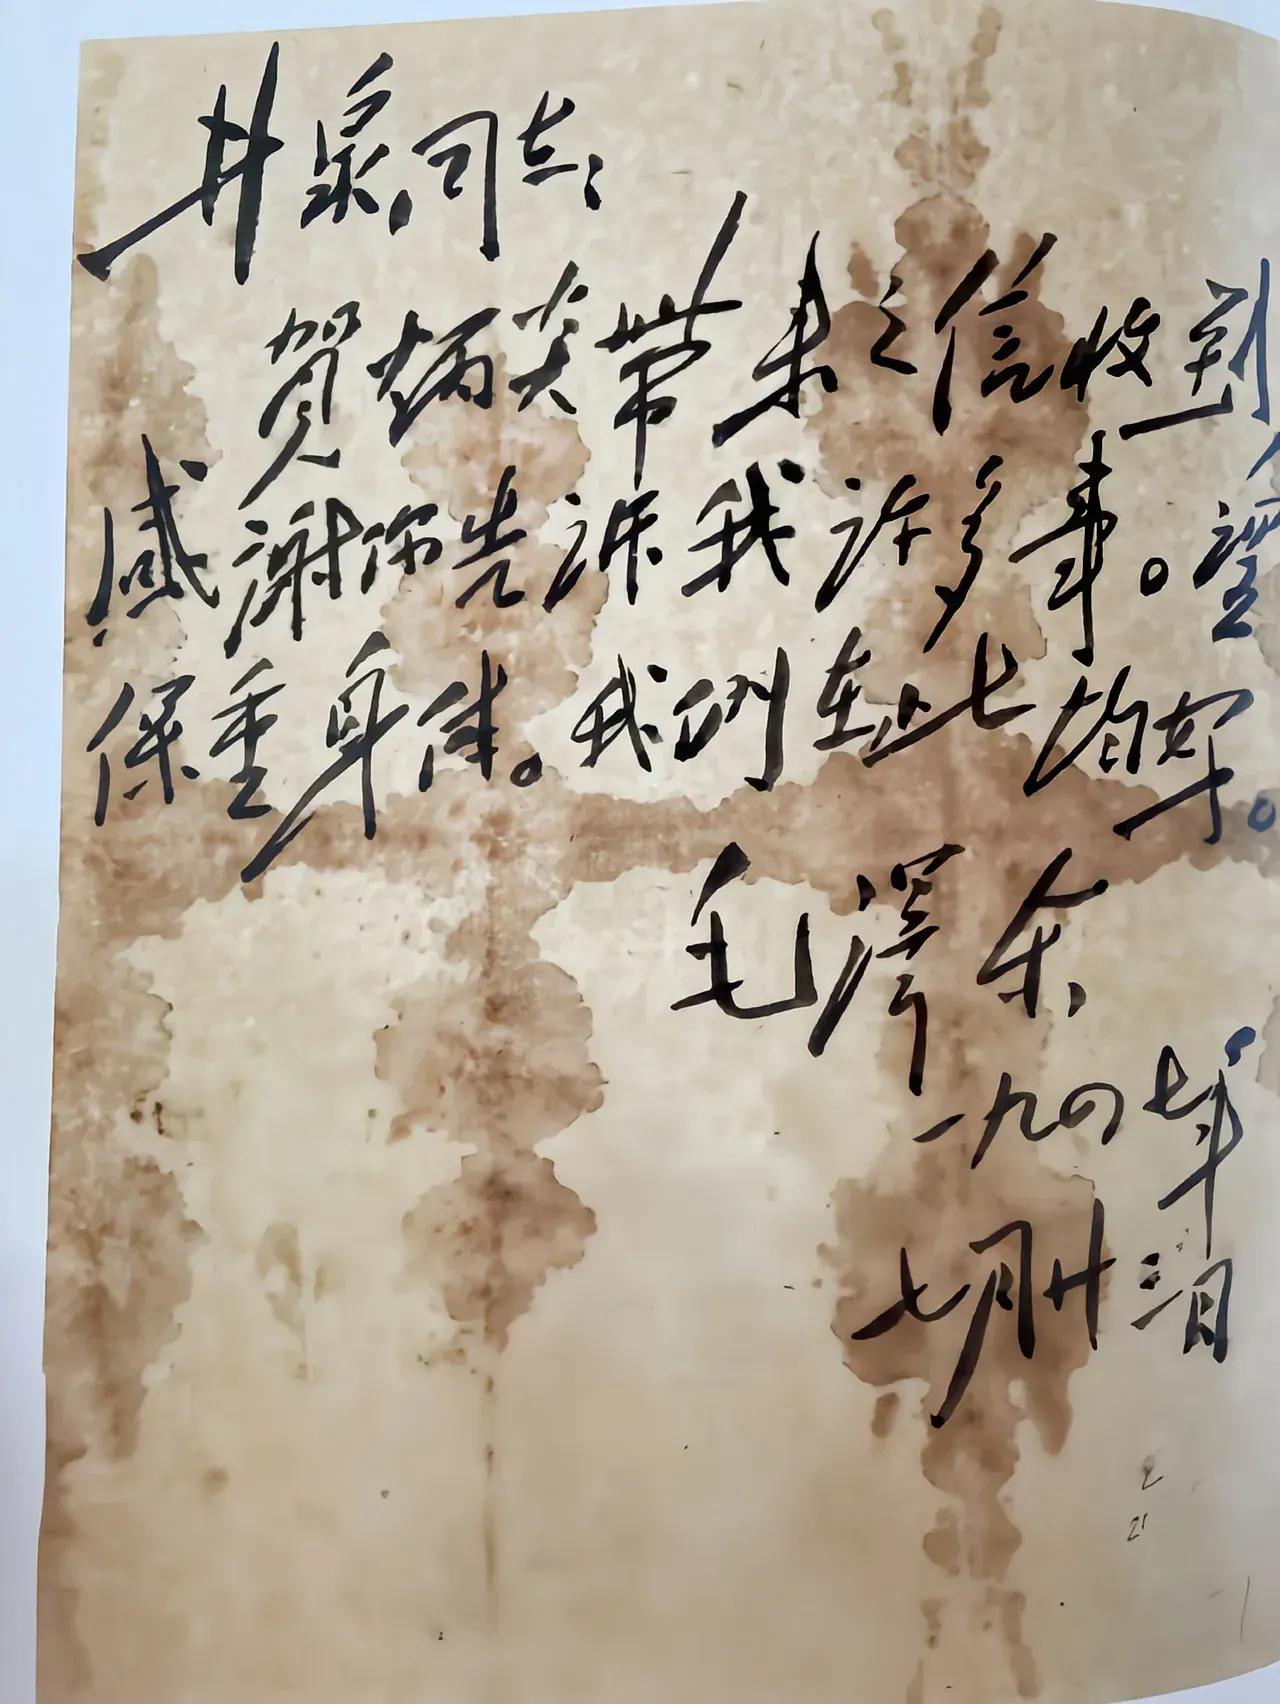 井泉同志：
贺炳炎带来之信收到，
感谢你告诉我许多事。望
保重身体。我们在此均好。
毛泽东
一九四七年
七月廿三日
21